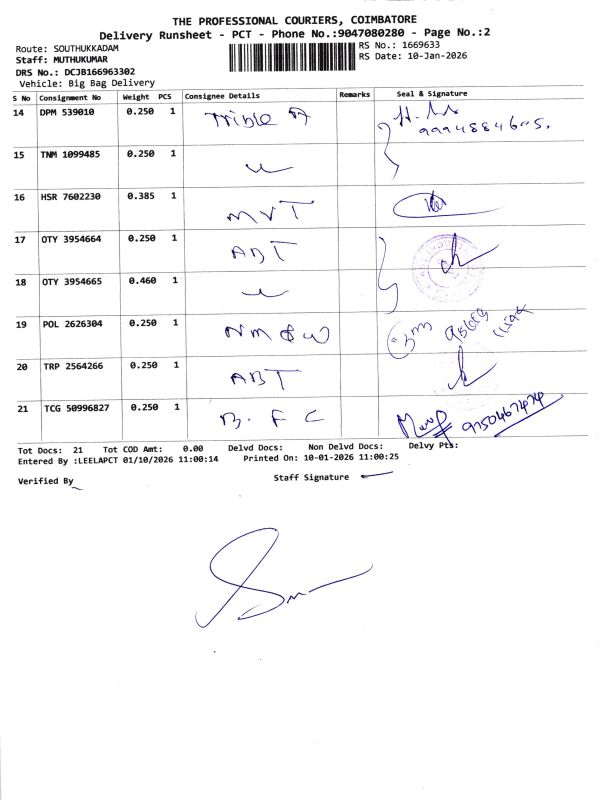 THE PROFESSIONAL COURIERS, COIMBATORE
Delivery Runsheet - PCT - Phone No.:9047080280 - Page No.:2
Route: SOUTHUKKADAM
RS No.: 1669633
Staff: MUTHUKUMAR
RS Date: 10-Jan-2026
DRS No.: DCJB166963302
Vehicle: Big Bag Delivery
S No Consignment No Weight PCS Consignee Details Remarks Seal & Signature
14 DPM 539010 0.250 1 Trible A
15 TNM 1099485 0.250 1
16 HSR 7602230 0.385 1 MVT
17 OTY 3954664 0.250 1 ABT
18 OTY 3954665 0.460 1
19 POL 2626304 0.250 1
20 TRP 2564266 0.250 1 ABT
21 TCG 50996827 0.250 1 B. F C 9750467474
Tot Docs: 21 Tot COD Amt: 0.00 Delvd Docs: Non Delvd Docs: Delvy Pts:
Entered By :LEELAPCT 01/10/2026 11:00:14 Printed On: 10-01-2026 11:00:25
Verified By Staff Signature